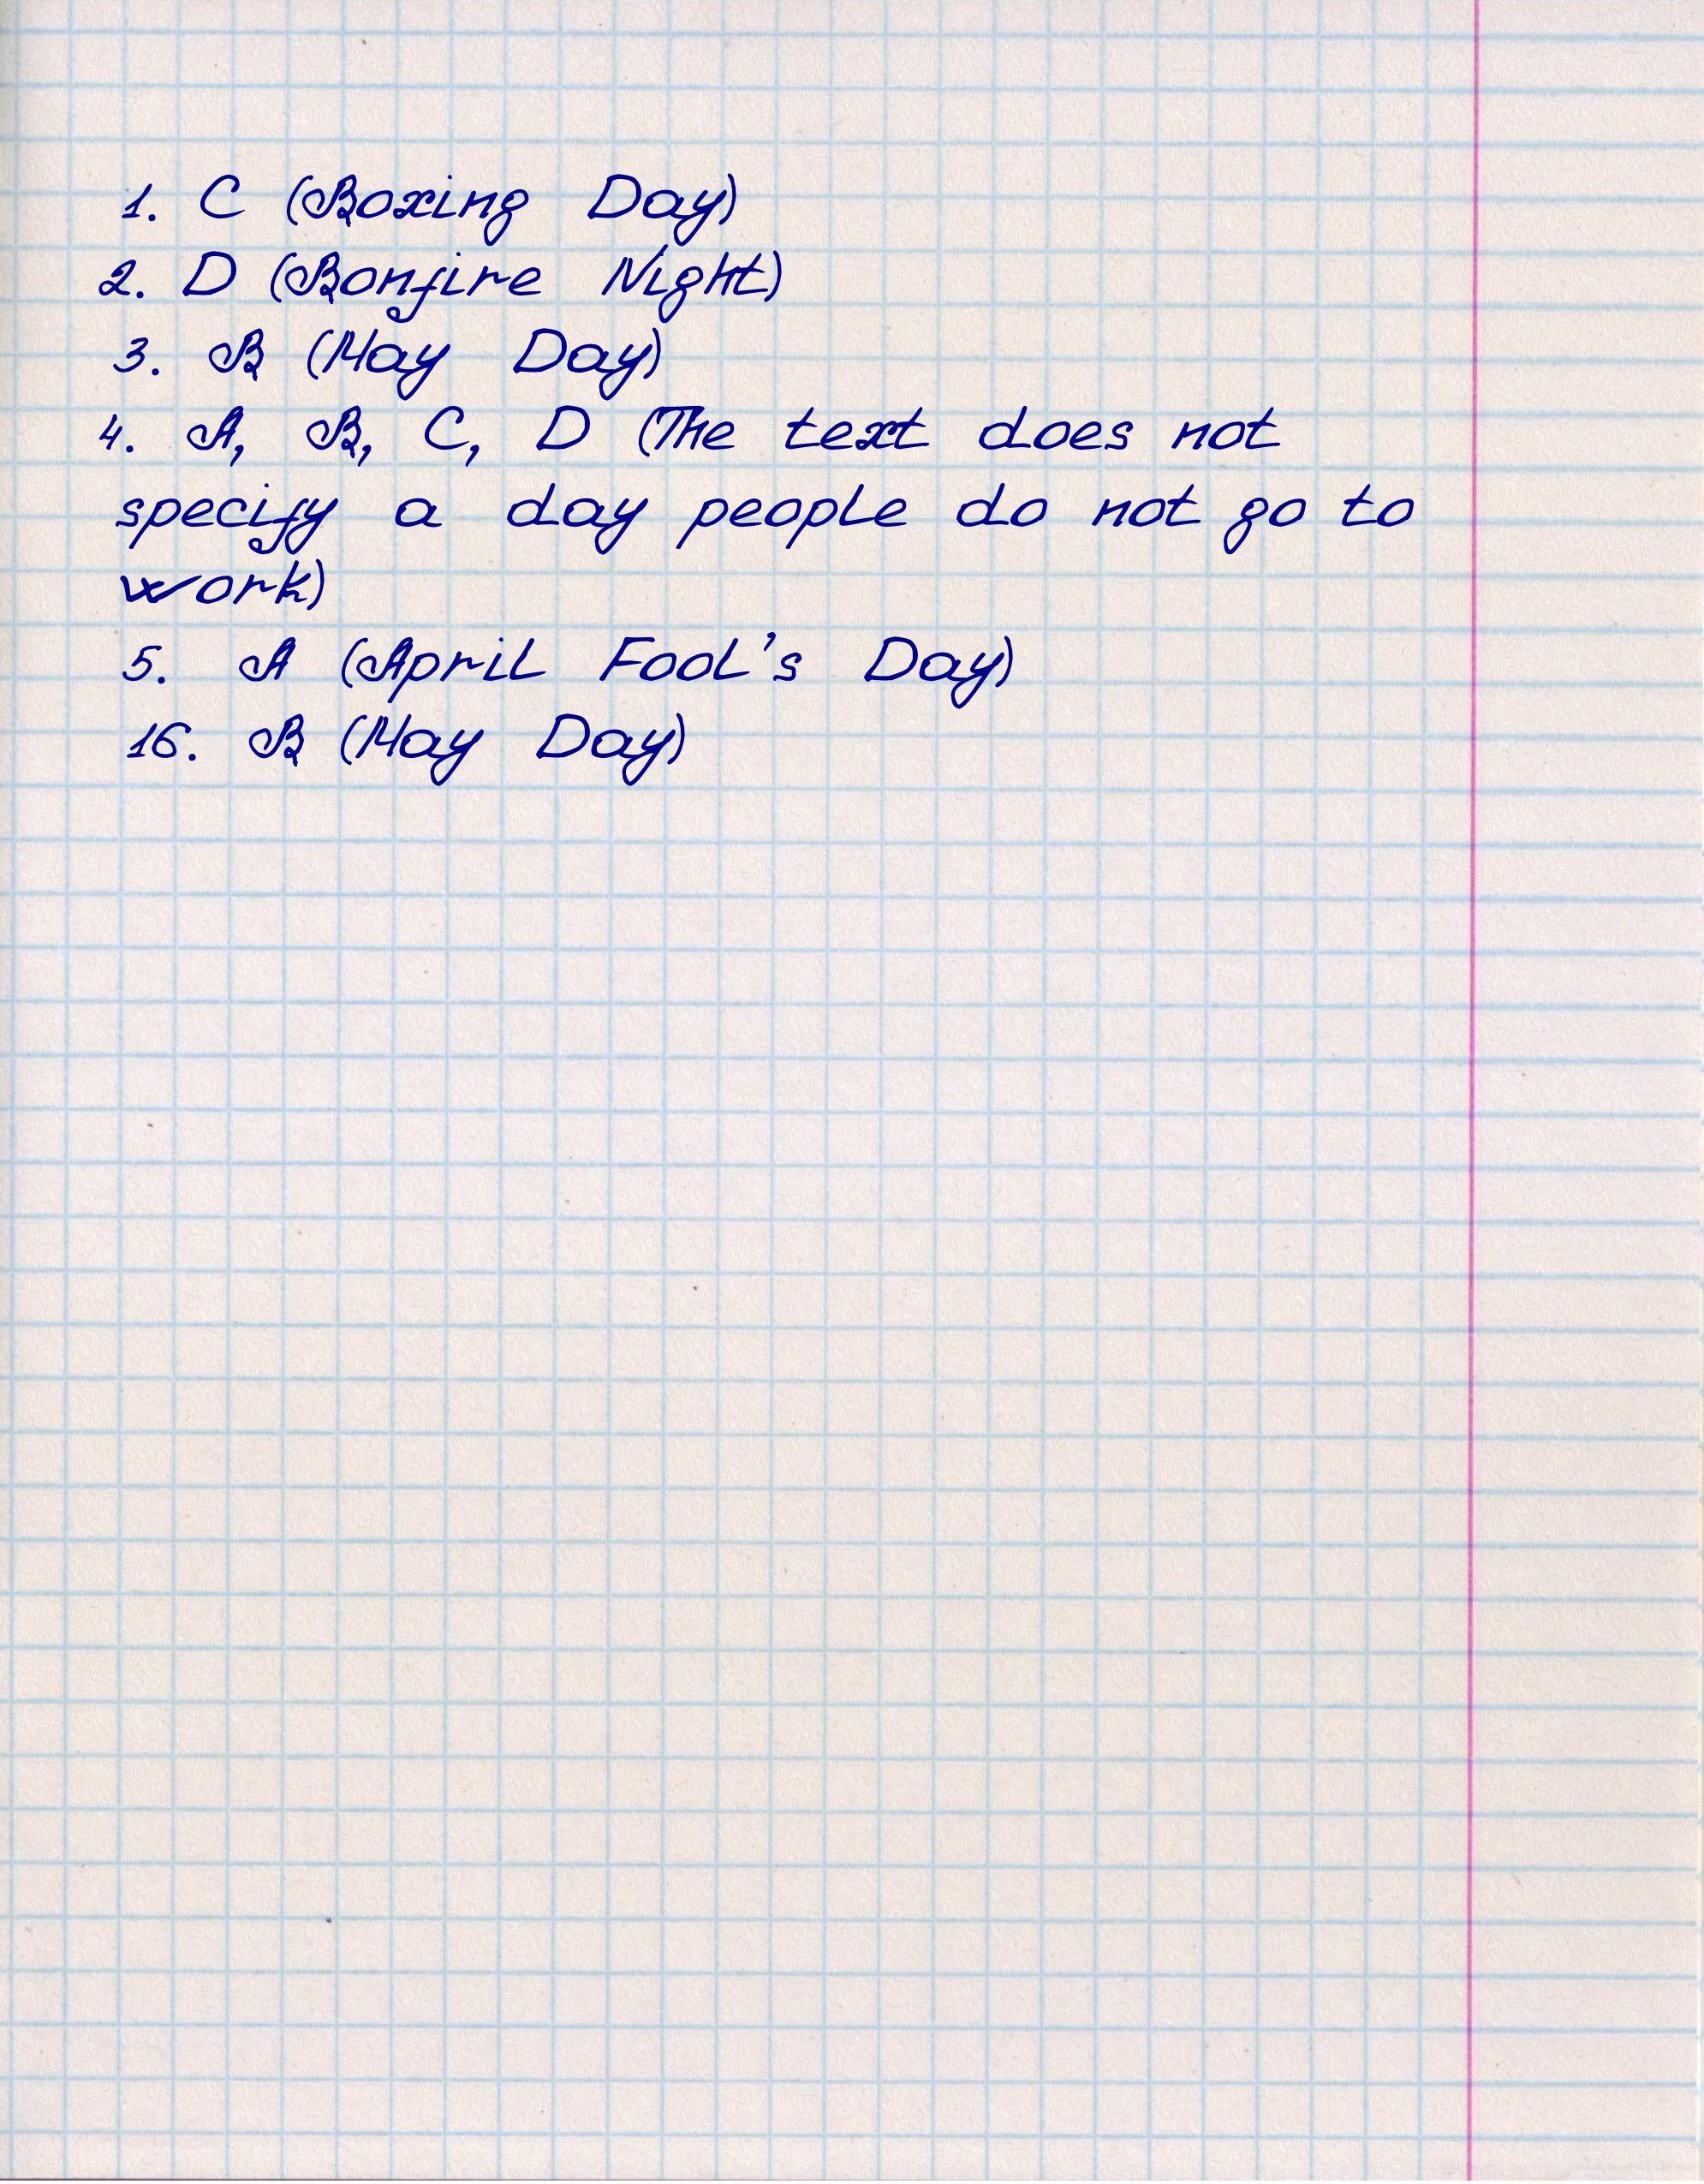 1. C (Boxing Day)
2. D (Bonfire Night)
3. B (May Day)
4. A, B, C, D (The text does not
specify a day people do not go to
work)
5. A (April Fool's Day)
16. B (May Day)